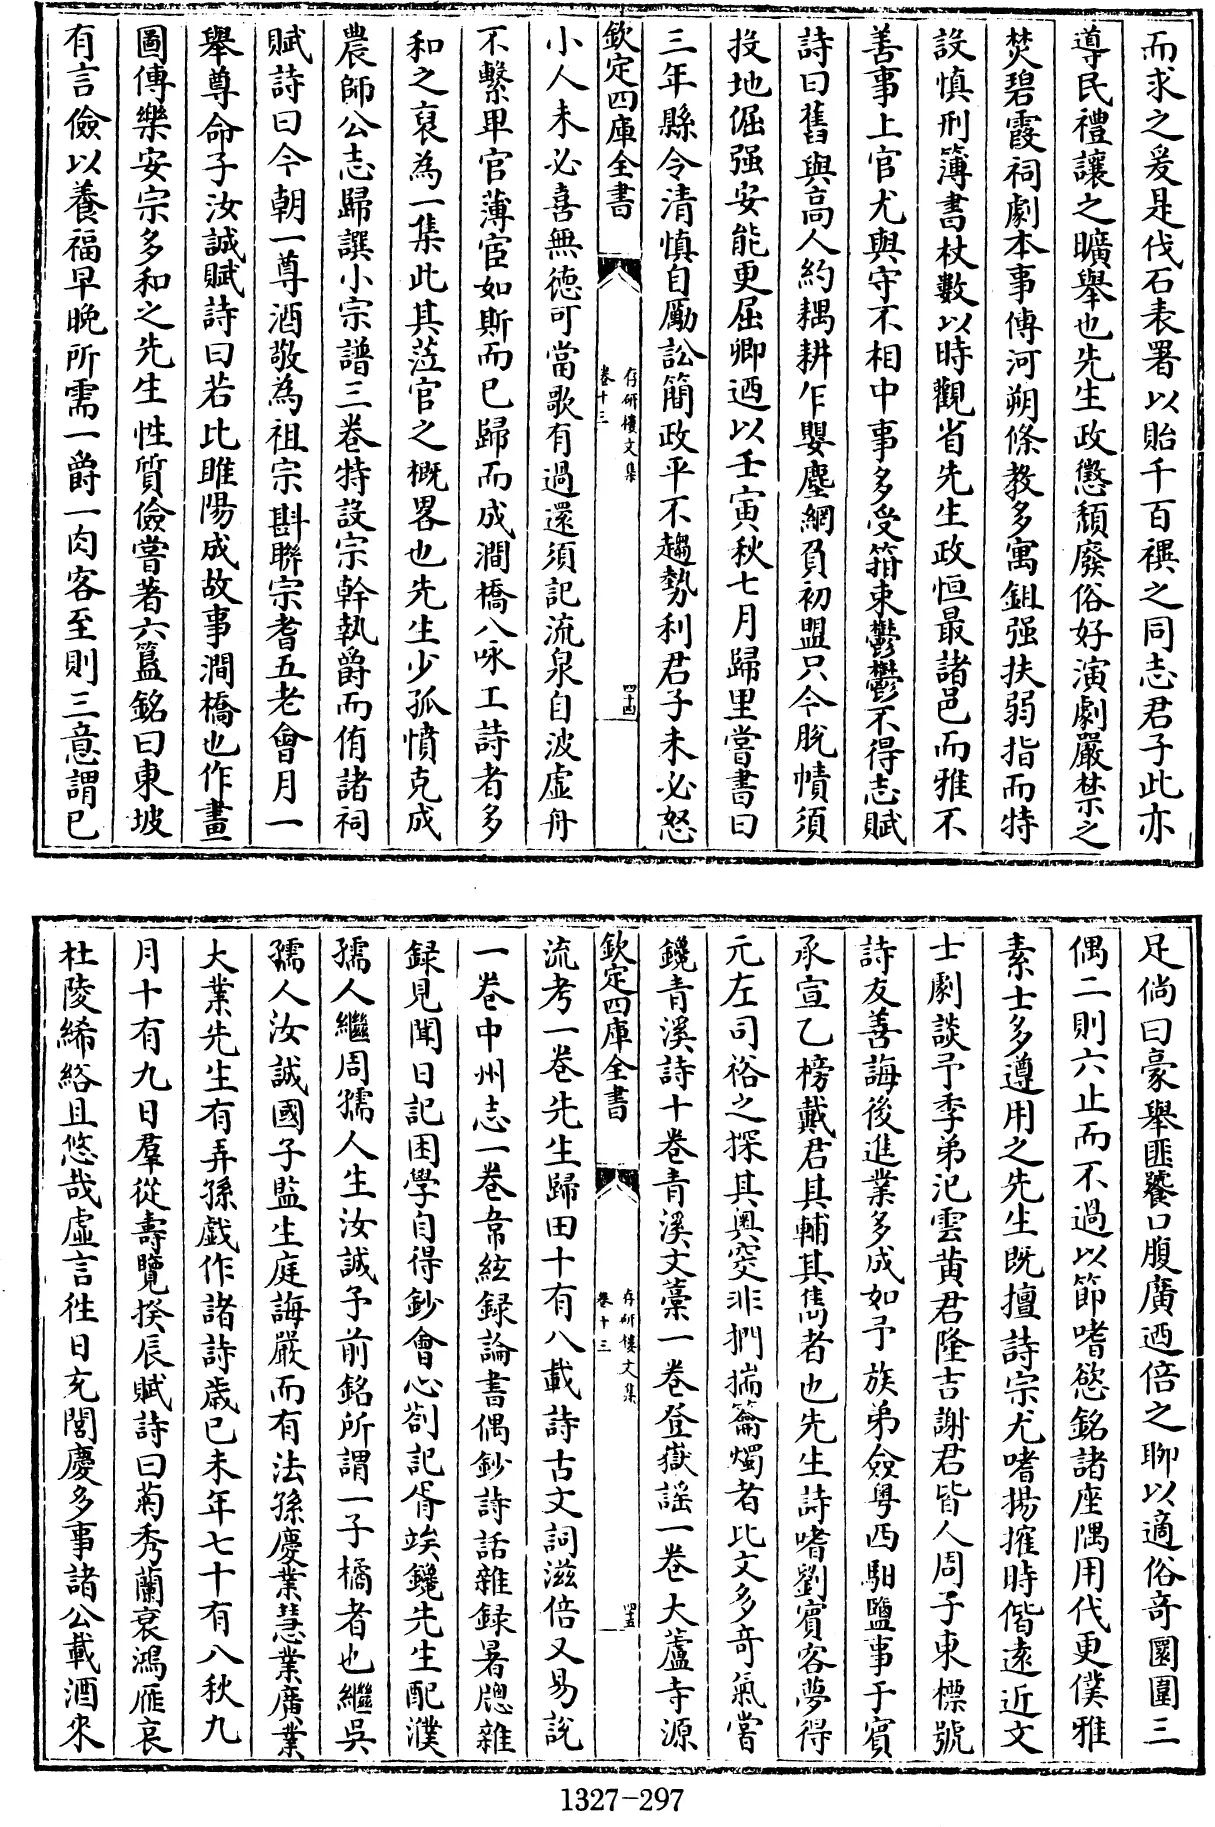 而求之爰是伐石表署以貽千百禩之同志君子此亦
導民禮讓之曠舉也先生政懲頽廢俗好演劇嚴禁之
焚碧霞祠劇本事傳河朔條教多寓鉏强扶弱指而特
設慎刑簿書杖數以時觀省先生政恒最諸邑而雅不
善事上官尤與守不相中事多受箝束鬱鬱不得志賦
詩曰舊與高人約耦耕乍嬰塵網負初盟只今脱幘須
投地倔强安能更屈卿迺以壬寅秋七月歸里嘗書曰
三年縣令清慎自勵訟簡政平不趨勢利君子未必怒
欽定四庫全書
存研樓文集
卷十三
四十四
小人未必喜無德可當歌有過還須記流泉自波虚舟
不繫卑官薄宦如斯而已歸而成澗橋八咏工詩者多
和之裒為一集此其涖官之概畧也先生少孤憤克成
農師公志歸譔小宗譜三卷特設宗幹執爵而侑諸祠
賦詩曰今朝一尊酒敬為祖宗斟聯宗耆五老會月一
舉尊命子汝誠賦詩曰若比睢陽成故事澗橋也作畫
圖傳樂安宗多和之先生性質儉嘗著六簋銘曰東坡
有言儉以養福早晚所需一爵一肉客至則三意謂已
足倘曰豪舉匪饕口腹廣迺倍之聊以適俗奇圜圍三
偶二則六止而不過以節嗜慾銘諸座隅用代更僕雅
素士多遵用之先生既擅詩宗尤嗜揚搉時偕遠近文
士劇談予季弟汜雲黄君隆吉謝君皆人周子東標號
詩友善誨後進業多成如予族弟僉粤西馹鹽事于賓
承宣乙榜戴君其輔其雋者也先生詩嗜劉賓客夢得
元左司裕之探其奥窔非捫揣籥燭者比文多奇氣嘗
鑱青溪詩十卷青溪文藁一卷登嶽謡一卷大蘆寺源
欽定四庫全書
存研樓文集
卷十三
四十五
流考一卷先生歸田十有八載詩古文詞滋倍又易説
一卷中州志一卷韋絃録論書偶鈔詩話雜録暑牕雜
録見聞日記困學自得鈔會心劄記胥竢鑱先生配濮
孺人繼周孺人生汝誠予前銘所謂一子橘者也繼吳
孺人汝誠國子監生庭誨嚴而有法孫慶業慧業廣業
大業先生有弄孫戯作諸詩歲已未年七十有八秋九
月十有九日羣從壽覽揆辰賦詩曰菊秀蘭衰鴻雁哀
杜陵絺綌且悠哉虚言徃日充閭慶多事諸公載酒來
1327-297